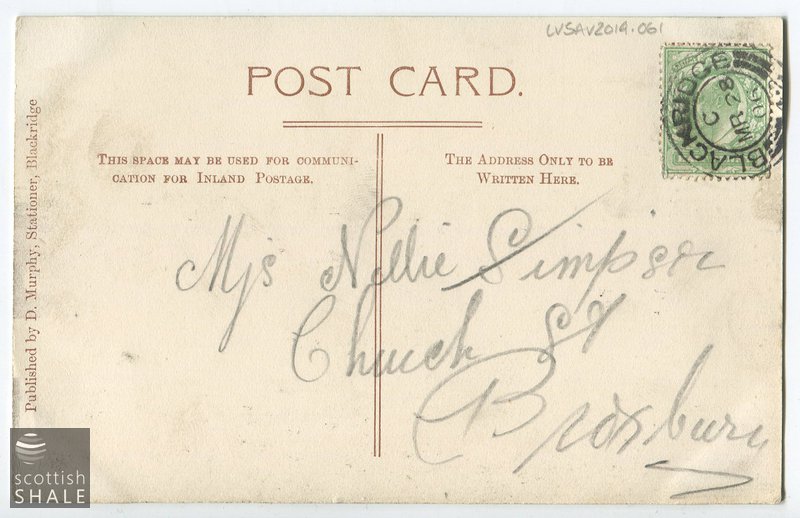 LVSAV2019.061
POST CARD.
BLACKRIDGE
C
MR 28
06
THIS SPACE MAY BE USED FOR COMMUNI-
CATION FOR INLAND POSTAGE.
THE ADDRESS ONLY TO BE
WRITTEN HERE.
Published by D. Murphy, Stationer, Blackridge
Mjs Nellie Simpson
Church St
Broxburn
scottish
SHALE